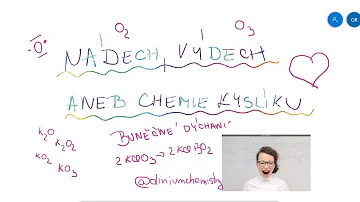 O₂ O₃
·O·
NÁDECH, VÝDECH
ANEB CHEMIE KYSLÍKU
K₂O
K₂O₂
KO₂
KO₃
BUNĚČNÉ DÝCHÁNÍ
@cliniumchemistry
OK